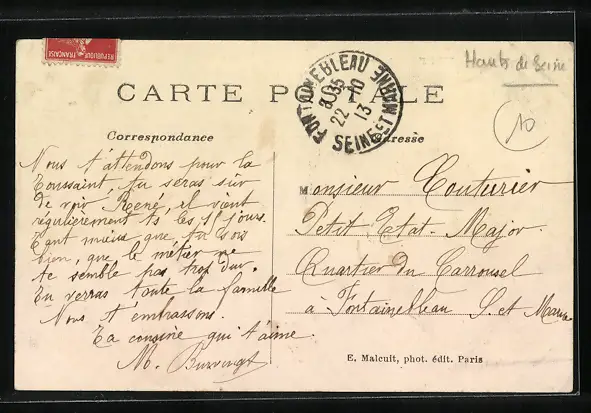 REPUBLIQUE FRANÇAISE
Hauts de Seine
10
CARTE POSTALE
FONTAINEBLEAU
8 35
22 10
13
SEINE ET MARNE
Correspondance
Adresse
Nous t'attendons pour la
Toussaint, tu seras sûr
de voir René, il vient
régulièrement ts les jours.
Tant mieux que tu sois
bien, que le métier ne
te semble pas trop dur.
Tu verras toute la famille
Nous t'embrassons.
Ta cousine qui t'aime.
M.
Monsieur Couturier
Petit Etat-Major
Quartier du Carrousel
à Fontainebleau S. et Marne
E. Malcuit, phot. édit. Paris